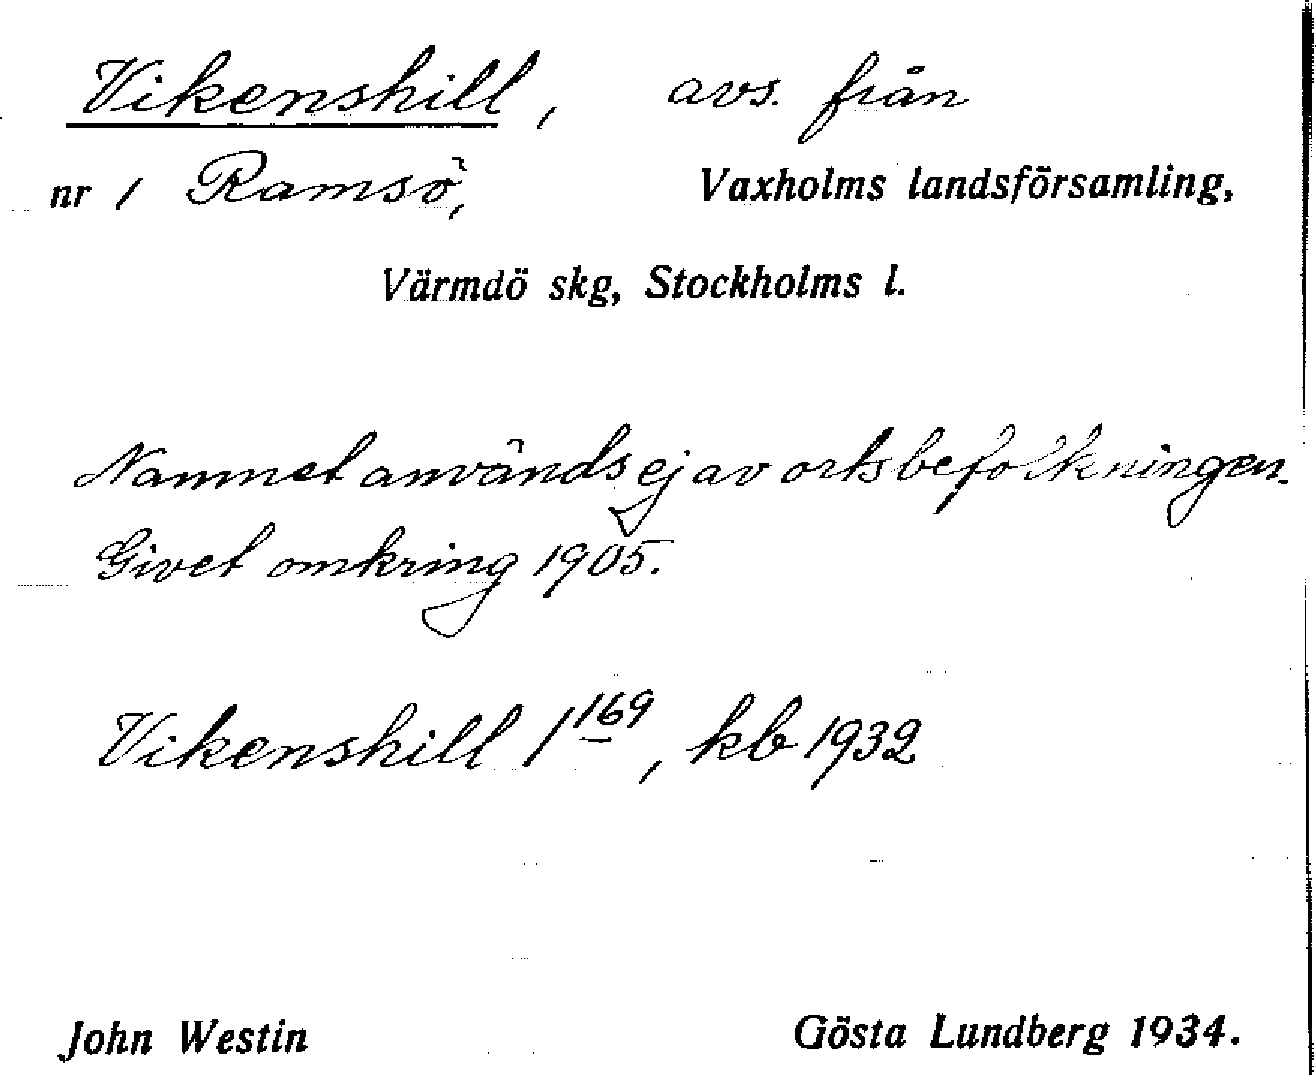 Vikenshill, avs. från
nr 1 Ramsö, Vaxholms landsförsamling,
Värmdö skg, Stockholms l.
Namnet används ej av ortsbefolkningen.
Givet omkring 1905.
Vikenshill 1169, kb 1932
John Westin Gösta Lundberg 1934.